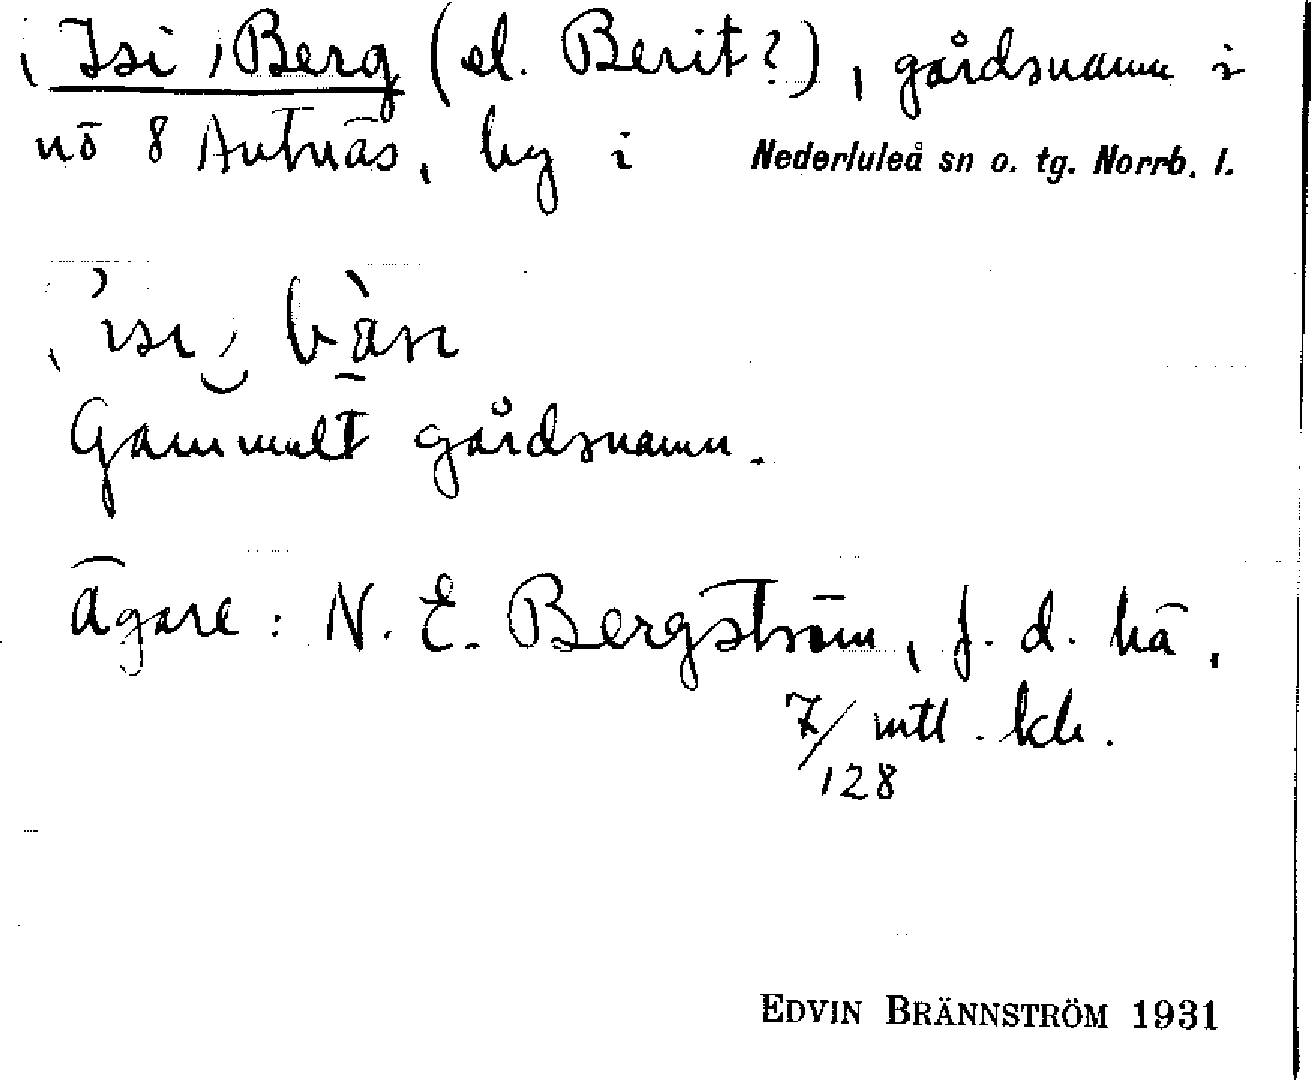 (Isi) Berg (el. Berit?), gårdsnamn i
nō 8 Antnäs, by i Nederluleå sn o. tg. Norrb. l.
Gammalt gårdsnamn.
Ägare: N. E. Bergström, f. d. hä,
7/128 mtl. kr.
EDVIN BRÄNNSTRÖM 1931